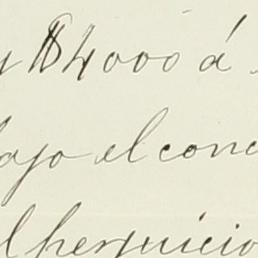 y $4000 á
bajo el conc
l perjuicio